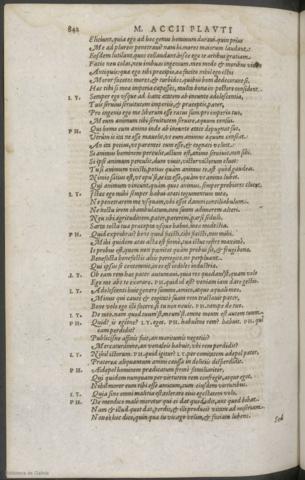 842 M. ACCII PLAVTI
Eliciunt, quia ego ad hoc genus hominum duraui. quin prius
Me ad plureis penetraui? nam hi mores maiorum laudant:
Eosdem lutilant, quos collaudant. hisce ego te artibus gratiam
Facio ne colas, neu imbuas ingenium. meo modo & moribus viuito
Antiquis: quæ ego tibi præcipio, ea facito nihil ego istos
Moror fæceos mores, & turbidos, quibus boni dedecorant se.
Hæc tibi si mea imperia capesses, multa bona in pectore consident.
L Y. Semper ego vsque ad hanc ætatem ab ineunte adolescentia,
Tuis seruiui seruitutem imperiis, & præceptis, pater,
Pro ingenio ego me liberum esse ratus sum, pro imperio tuo,
Meum animum tibi seruitutem seruire, æquum censui.
P H. Qui homo cum animo inde ab ineunte ætate depugnat suo,
Vtrum ita se esse mauelit, vt eum animus æquum censeat,
An ita potius, vt parentes eum esse, & cognati velint:
Si animus hominem perculit, actum est, animo seruit, non sibi.
Si ipse animum perculit, dum viuit, victor victorum cluet:
Tu si animum vicisti, potius quàm animus te, est quod gaudeas.
Nimio satius est, vt opus est ita esse, quàm vt animo lubet.
Qui animum vincunt, quàm quos animus, semper probiores cluent.
L Y. Istæc ego mihi semper habui ætati integumentum meæ,
Ne penetrarem me vsquam, vbi esset damni conciliabulum:
Neu noctu irem obambulatum, neu suum adimerem alteri.
Neu tibi ægritudinem, pater, parerem, parsi sedulò.
Sarta tecta tua præcepta vsque habui, mea modestia.
P H. Quid exprobras? bene quod fecisti, tibi fecisti, non mihi.
Mihi quidem ætas acta est fermè, tua istuc refert maxumè.
Is probus est, quem pœnitet quàm probus sit, & frugi bonæ.
Benefacta benefactis aliis pertegito, ne perpluant.
Qui ipsus sibi satis placet,
L Y. Ob eam rem hæc pater autumaui, quia res quædam'st, quam volo
Ego me abs te exorare. P H. quid id est? veniam iam dare gestio.
L Y. Adolescenti huic genere summo, amico, atque æquali meo,
Minus qui cautè & cogitatè suam rem tractauit pater,
Bene volo ego illi facere, si tu non neuis. P H. nempe de tuo?
L Y. De meo. nam quod tuum'st, meum'st, omne meum est autem tuum.
P H. Quid? is egetne? L Y. eget. P H. habuitne rem? L Y. habuit. P H. qui
eam perdidit?
Publicisne affinis fuit, an maritumis negotiis?
Mercaturánne, an venaleis habuit, vbi rem perdidit?
L Y. Nihil istorum. P H. quid igitur? L Y. per comitatem ædepol, pater:
Præterea aliquantum animi causa in deliciis disperdidit.
P H. Ædepol hominem prædicatum fermè familiariter,
Qui quidem nusquam per virtutem rem confregit, atque eget.
Nihil moror eum tibi esse amicum, cum eiusdem virtutibus.
L Y. Quia sine omni malitia est, tolerare eius egestatem volo.
P H. De mendico malè meretur qui ei dat quod edit, aut quod bibat.
Nam & illud quod dat, perdit, & illi producit vitam ad miseriam.
Non eò hæc dico, quin quæ tu vis ego velim, & faciam lubens:
Sed